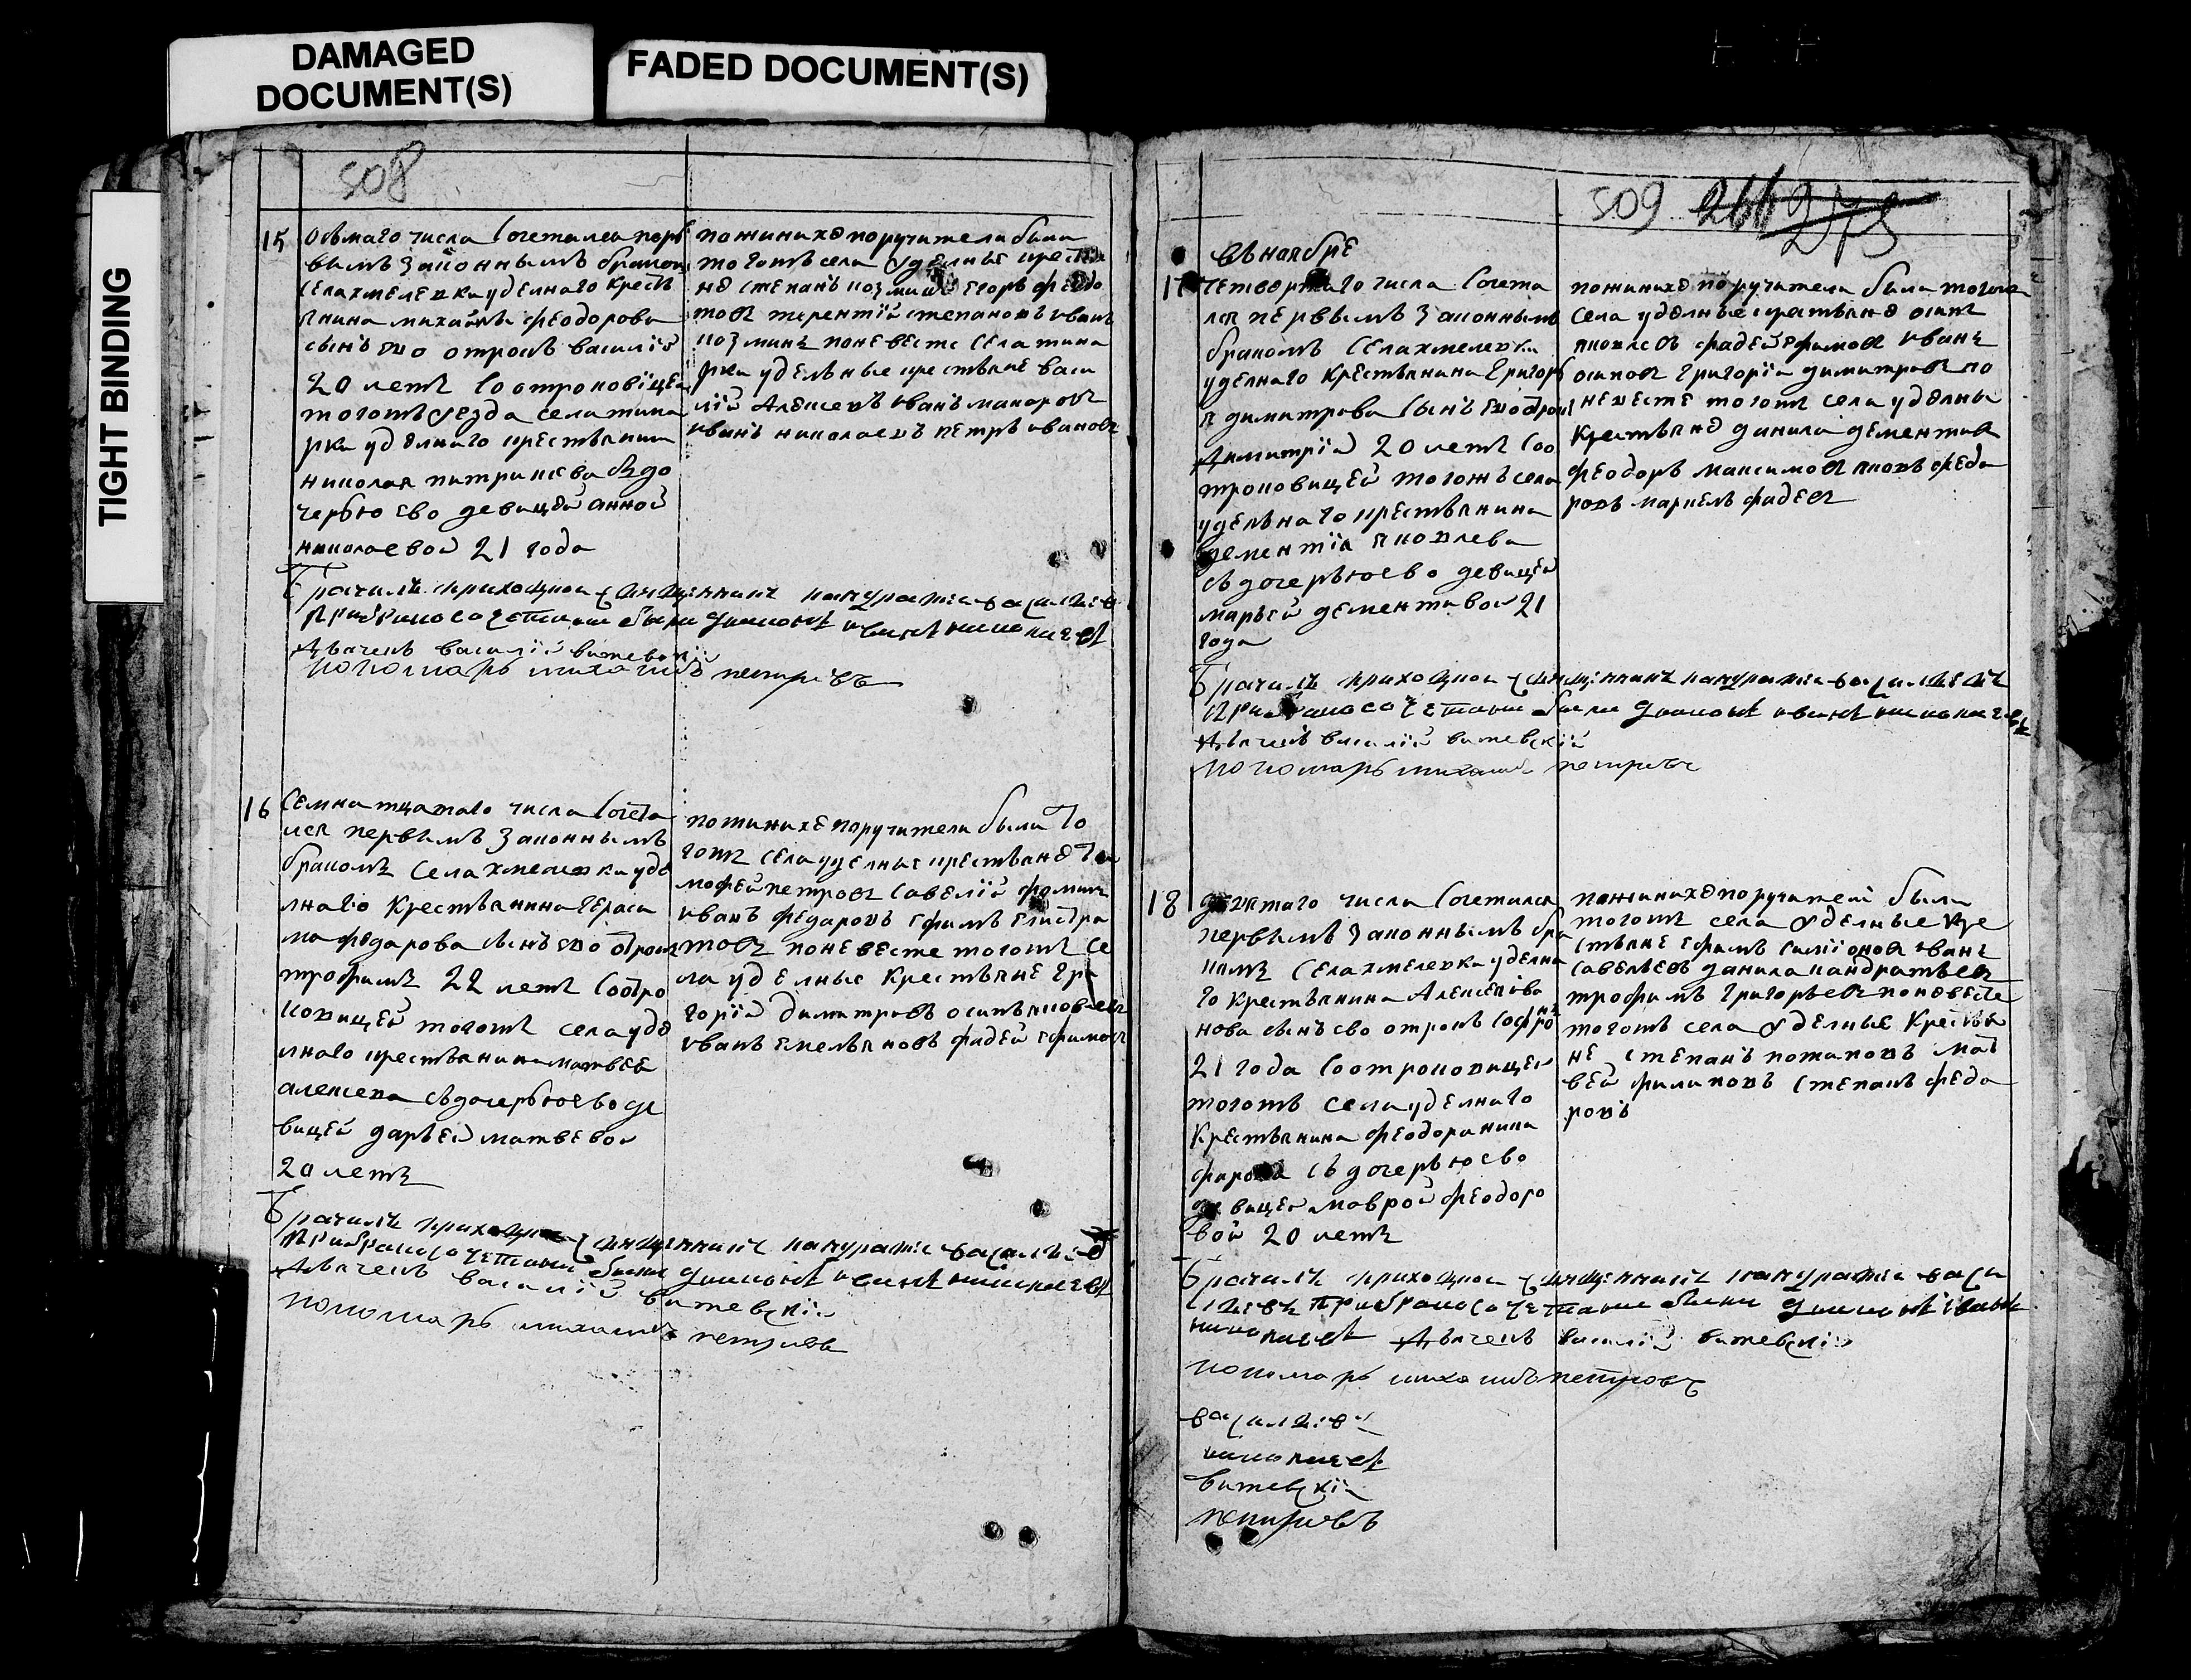 DAMAGED
DOCUMENT(S)
FADED DOCUMENT(S)
TIGHT BINDING
508
15
осьмаго числа сочетался перв
вымъ законнымъ бракомъ
села хмелевки уделнаго кресть
янина михайлы феодорова
сынъ ево отрокъ василий
20 летъ со отроковицей
тогожъ уезда села
уделнаго крестьянина
николая
черью ево девицей анной
николаевой 21 года
по женихе поручители были
тогожъ села уделные
степанъ козминъ егоръ
терентий степановъ иванъ
козминъ по невесте села
уделные крестьяне васи
лий алексеевъ иванъ макаровъ
иванъ николаевъ петръ ивановъ
Брачилъ приходной священникъ василиевъ
при бракосочетании были диаконъ иванъ николаевъ
Дьячекъ василий витевский
пономарь михаилъ петровъ
16
Семнатцатаго числа сочета
лся первымъ законнымъ
бракомъ села хмелевки уде
лнаго крестьянина гераси
ма федарова сынъ ево отрокъ
трофимъ 22 летъ со отро
ковицей тогожъ села уде
лнаго крестьянина матвея
алексеева съ дочерью ево де
вицей дарьей матвевой
20 летъ
по женихе поручители были то
гожъ села уделные крестьяне ти
мофей петровъ савелий фоминъ
иванъ федаровъ ефимъ
по невесте тогожъ се
ла уделные крестьяне гри
горий димитровъ осипъ яковлевъ
иванъ емельяновъ фадей ефимовъ
Брачилъ приходной священникъ василиевъ
при бракосочетании были диаконъ иванъ николаевъ
Дьячекъ василий витевский
пономарь михаилъ петровъ
509
въ ноябре
17
четвертаго числа сочета
лся первымъ законнымъ
бракомъ села хмелевки
уделнаго крестьянина григорь
я димитрова сынъ ево отрокъ
Димитрий 20 летъ со о
троковицей тогожъ села
удельнаго крестьянина
дементия яковлева
съ дочерью ево девицей
марьей дементьевой 21
года
по женихе поручители были тогожъ
села уделные крестьяне осипъ
яковлевъ фадей ефимовъ иванъ
осиповъ григорий димитровъ по
невесте тогожъ села уделны
крестьяне данила дементьевъ
феодоръ максимовъ яковъ федо
ровъ маркелъ фадеевъ
Брачилъ приходной священникъ василиевъ
при бракосочетании были диаконъ иванъ николаевъ
Дьячекъ василий витевский
пономарь михаилъ петровъ
18
девятаго числа сочетался
первымъ законнымъ бра
комъ села хмелевки уделна
го крестьянина Алексея ива
нова сынъ ево отрокъ софронъ
21 года со отроковицей
тогожъ села уделнаго
крестьянина феодора ники
фарова съ дочерью ево
девицей маврой феодоро
вой 20 летъ
по женихе поручители были
тогожъ села уделные кре
стьяне ефимъ симионовъ иванъ
савельевъ данила кандратьевъ
трофимъ григорьевъ по невесте
тогожъ села уделные крестья
не степанъ потаповъ мат
вей филиповъ степанъ федо
ровъ
Брачилъ приходной священникъ васи
лиевъ при бракосочетании были диаконъ иванъ
николаевъ Дьячекъ василий витевский
пономарь михаилъ петровъ
василиевъ
николаевъ
витевский
петровъ